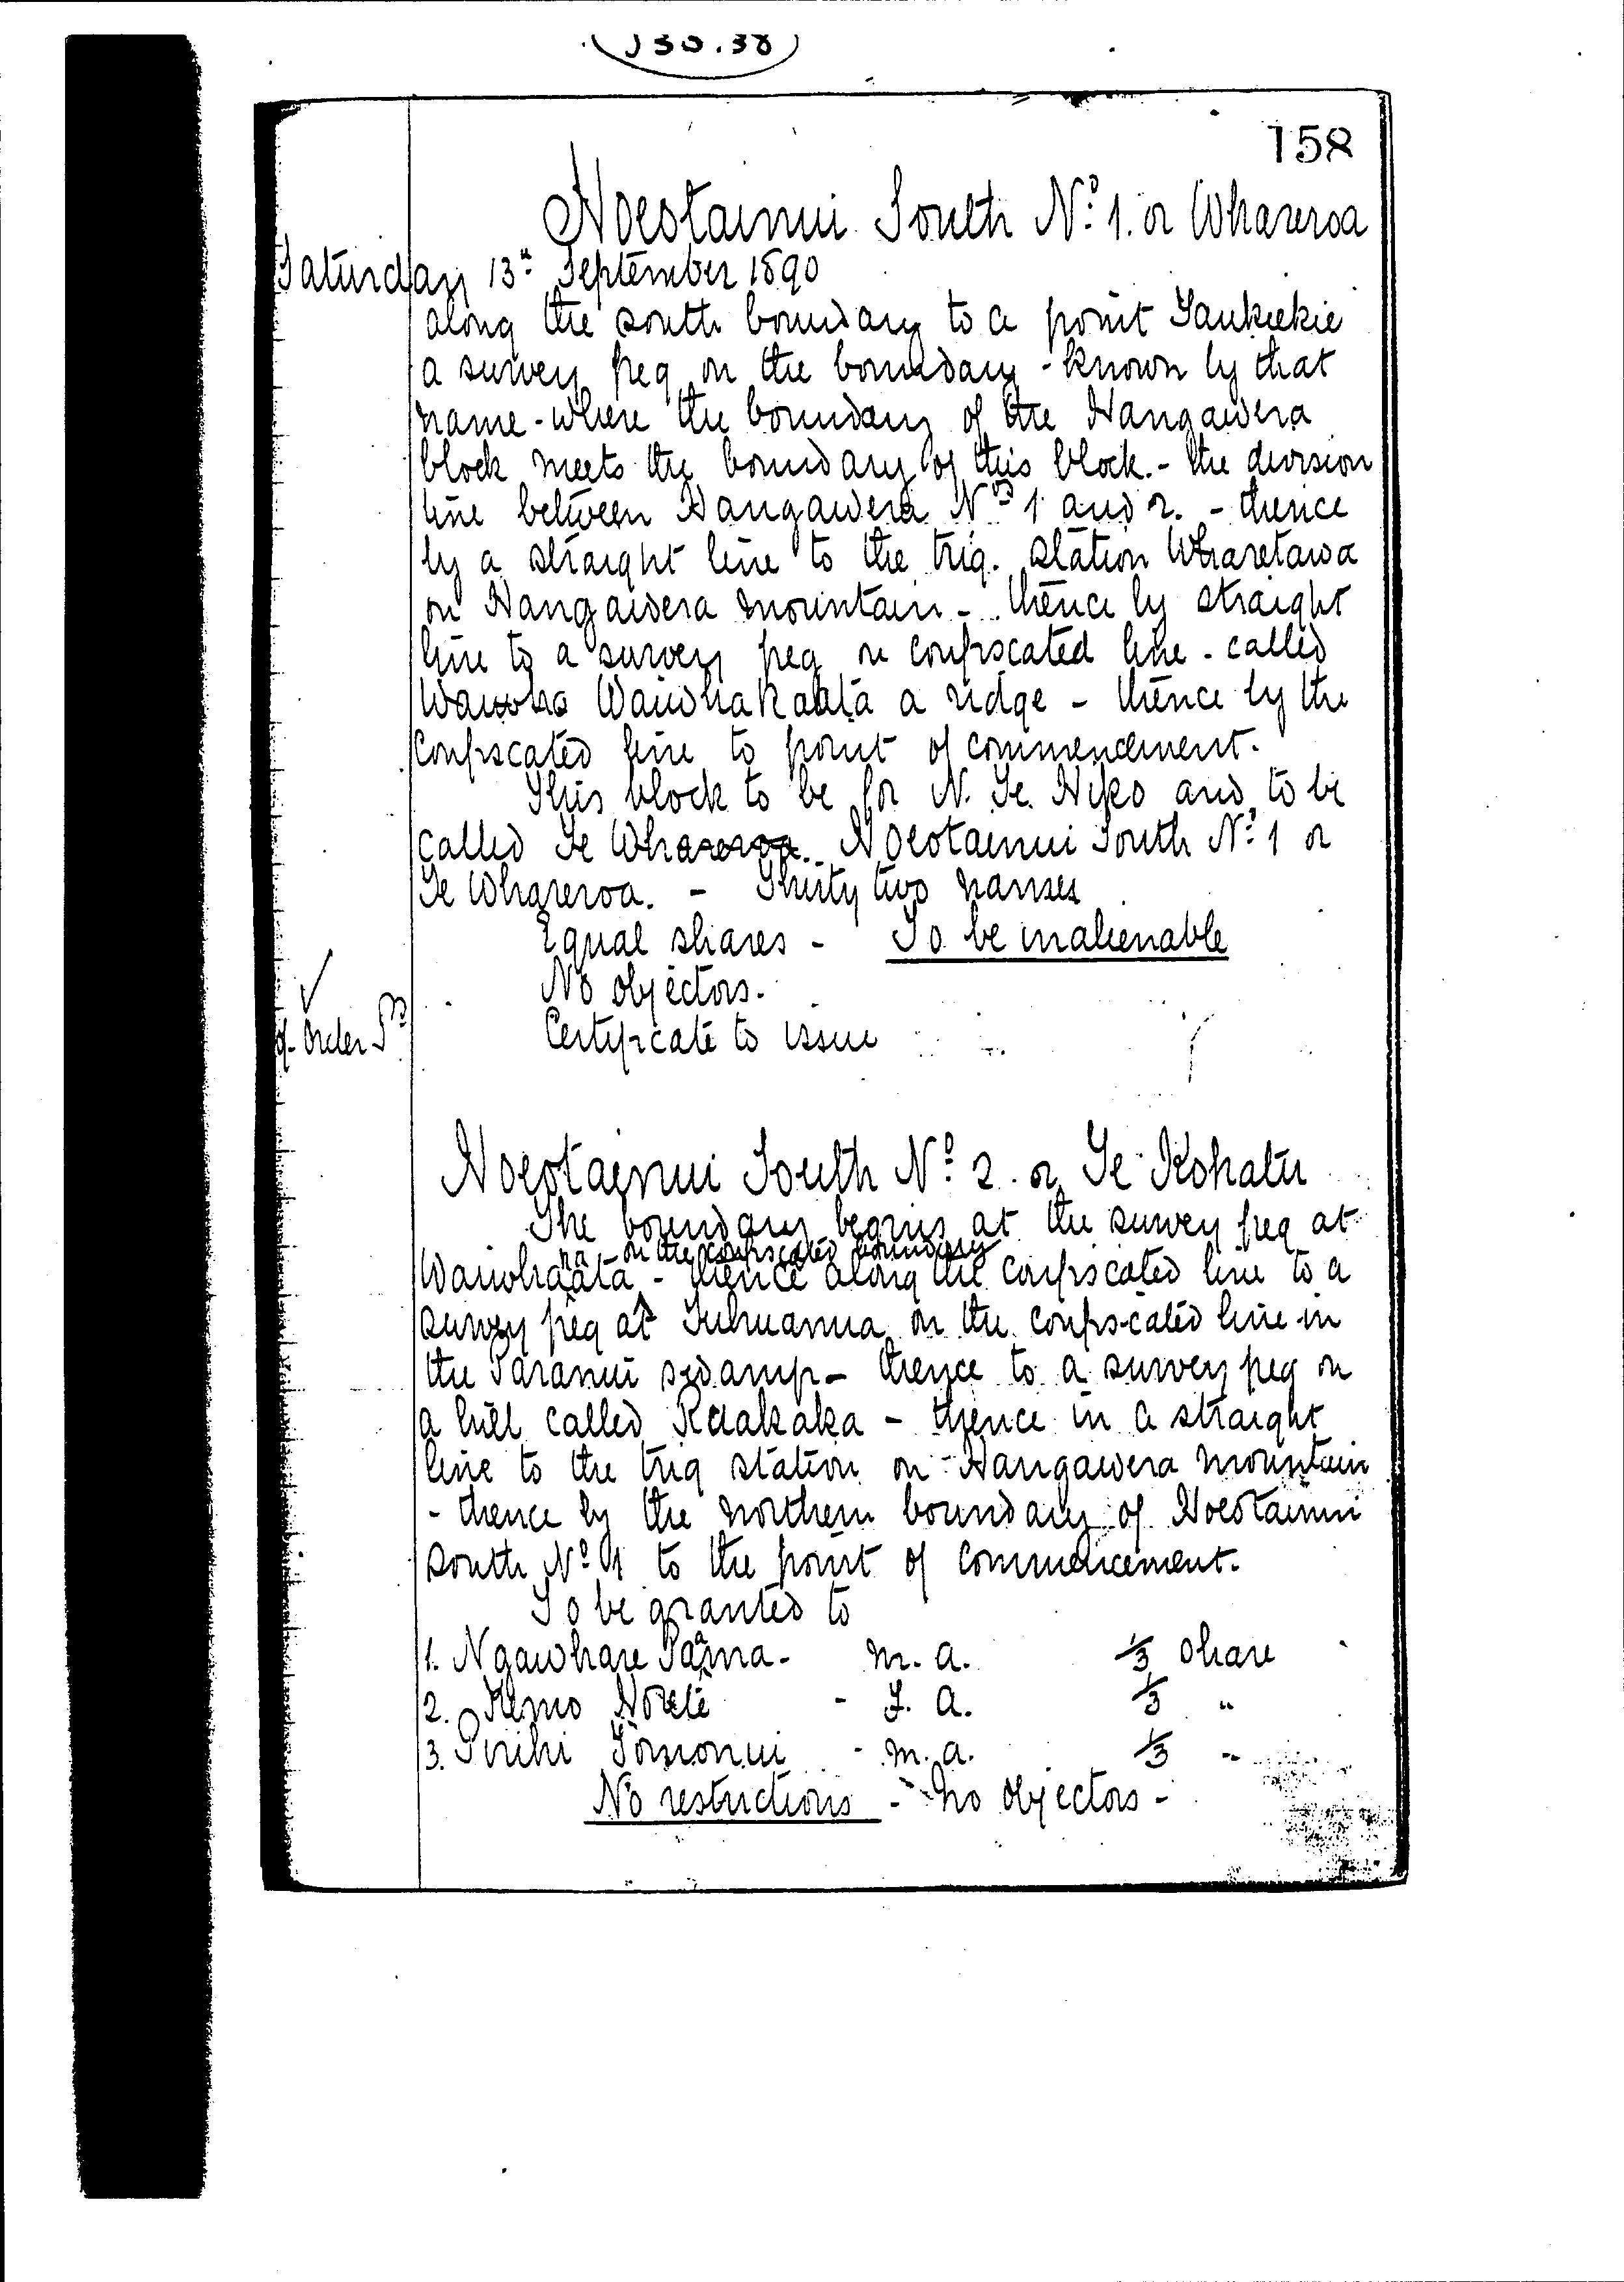 158
Hoeotainui South No. 1. or Whareroa
Saturday 13th September 1890
along the south boundary to a point Taukiekie
a survey peg on the boundary - known by that
name - where the boundary of the Hangawera
block meets the boundary of this block. - the division
line between Hangawera Nos 1 and 2. - thence
by a straight line to the trig. station Wharetawa
on Hangawera mountain - thence by straight
line to a survey peg on confiscated line - called
Waiwhakaata a ridge - thence by the
confiscated line to point of commencement.
This block to be for N. Te. Hiko and to be
called Te Whareroa. Hoeotainui South No. 1 or
Te Whareroa. - Thirty two names
Equal shares - To be inalienable
No objectors.
Order
Certificate to issue
Hoeotainui South No. 2. or Te Kohatu
The boundary begins at the survey peg at
on the confiscated boundary
- thence along the confiscated line to a
survey peg at Tuhuanua on the confiscated line in
the Paranui swamp - thence to a survey peg on
a hill called Raakaka - thence in a straight
line to the trig station on Hangawera mountain
- thence by the northern boundary of Hoeotainui
South No. 1 to the point of commencement.
To be granted to
1. Ngawhare - m. a. 1/3 share
2. - F. a. 1/3 "
3. Pirihi - m. a. 1/3 "
No restrictions - No objectors -